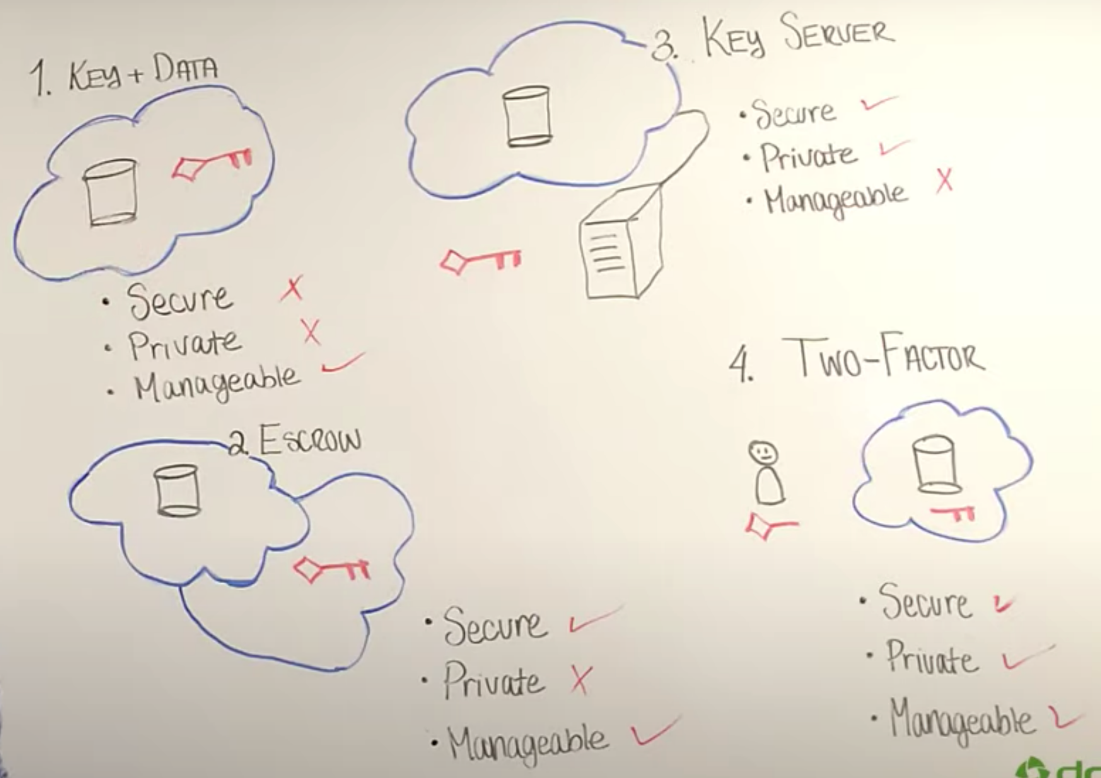 1. KEY + DATA
• Secure ✗
• Private ✗
• Manageable ✓
2. ESCROW
• Secure ✓
• Private ✗
• Manageable ✓
3. KEY SERVER
• Secure ✓
• Private ✓
• Manageable ✗
4. TWO-FACTOR
• Secure ✓
• Private ✓
• Manageable ✓